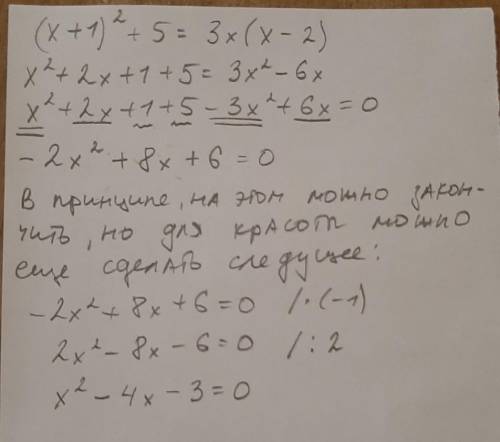 (x+1)² + 5 = 3x(x-2)
x² + 2x + 1 + 5 = 3x² - 6x
x² + 2x + 1 + 5 - 3x² + 6x = 0
-2x² + 8x + 6 = 0
В принципе, на этом можно закон-
чить, но для красоты можно
еще сделать следущее:
-2x² + 8x + 6 = 0 /·(-1)
2x² - 8x - 6 = 0 /:2
x² - 4x - 3 = 0